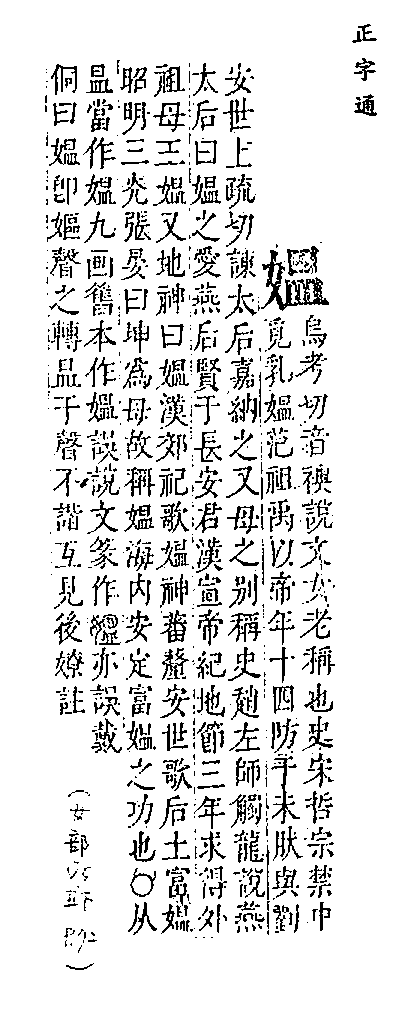 正字通
媪
烏考切音襖說文女老稱也史宋哲宗禁中
覓乳媪范祖禹以帝年十四防千未肰與劉
安世上疏切諫太后嘉納之又母之别稱史趙左師觸龍說燕
太后曰媪之愛燕后賢于長安君漢宣帝紀地節三年求得外
祖母王媪又地神曰媪漢郊祀歌媪神蕃釐安世歌后土富媪
昭明三光張晏曰坤爲母故稱媪海内安定富媪之功也○从
昷當作媪九画舊本作媪誤說文篆作亦誤戴
侗曰媪卽嫗聲之轉昷于聲不諧互見後嫽註
（女部